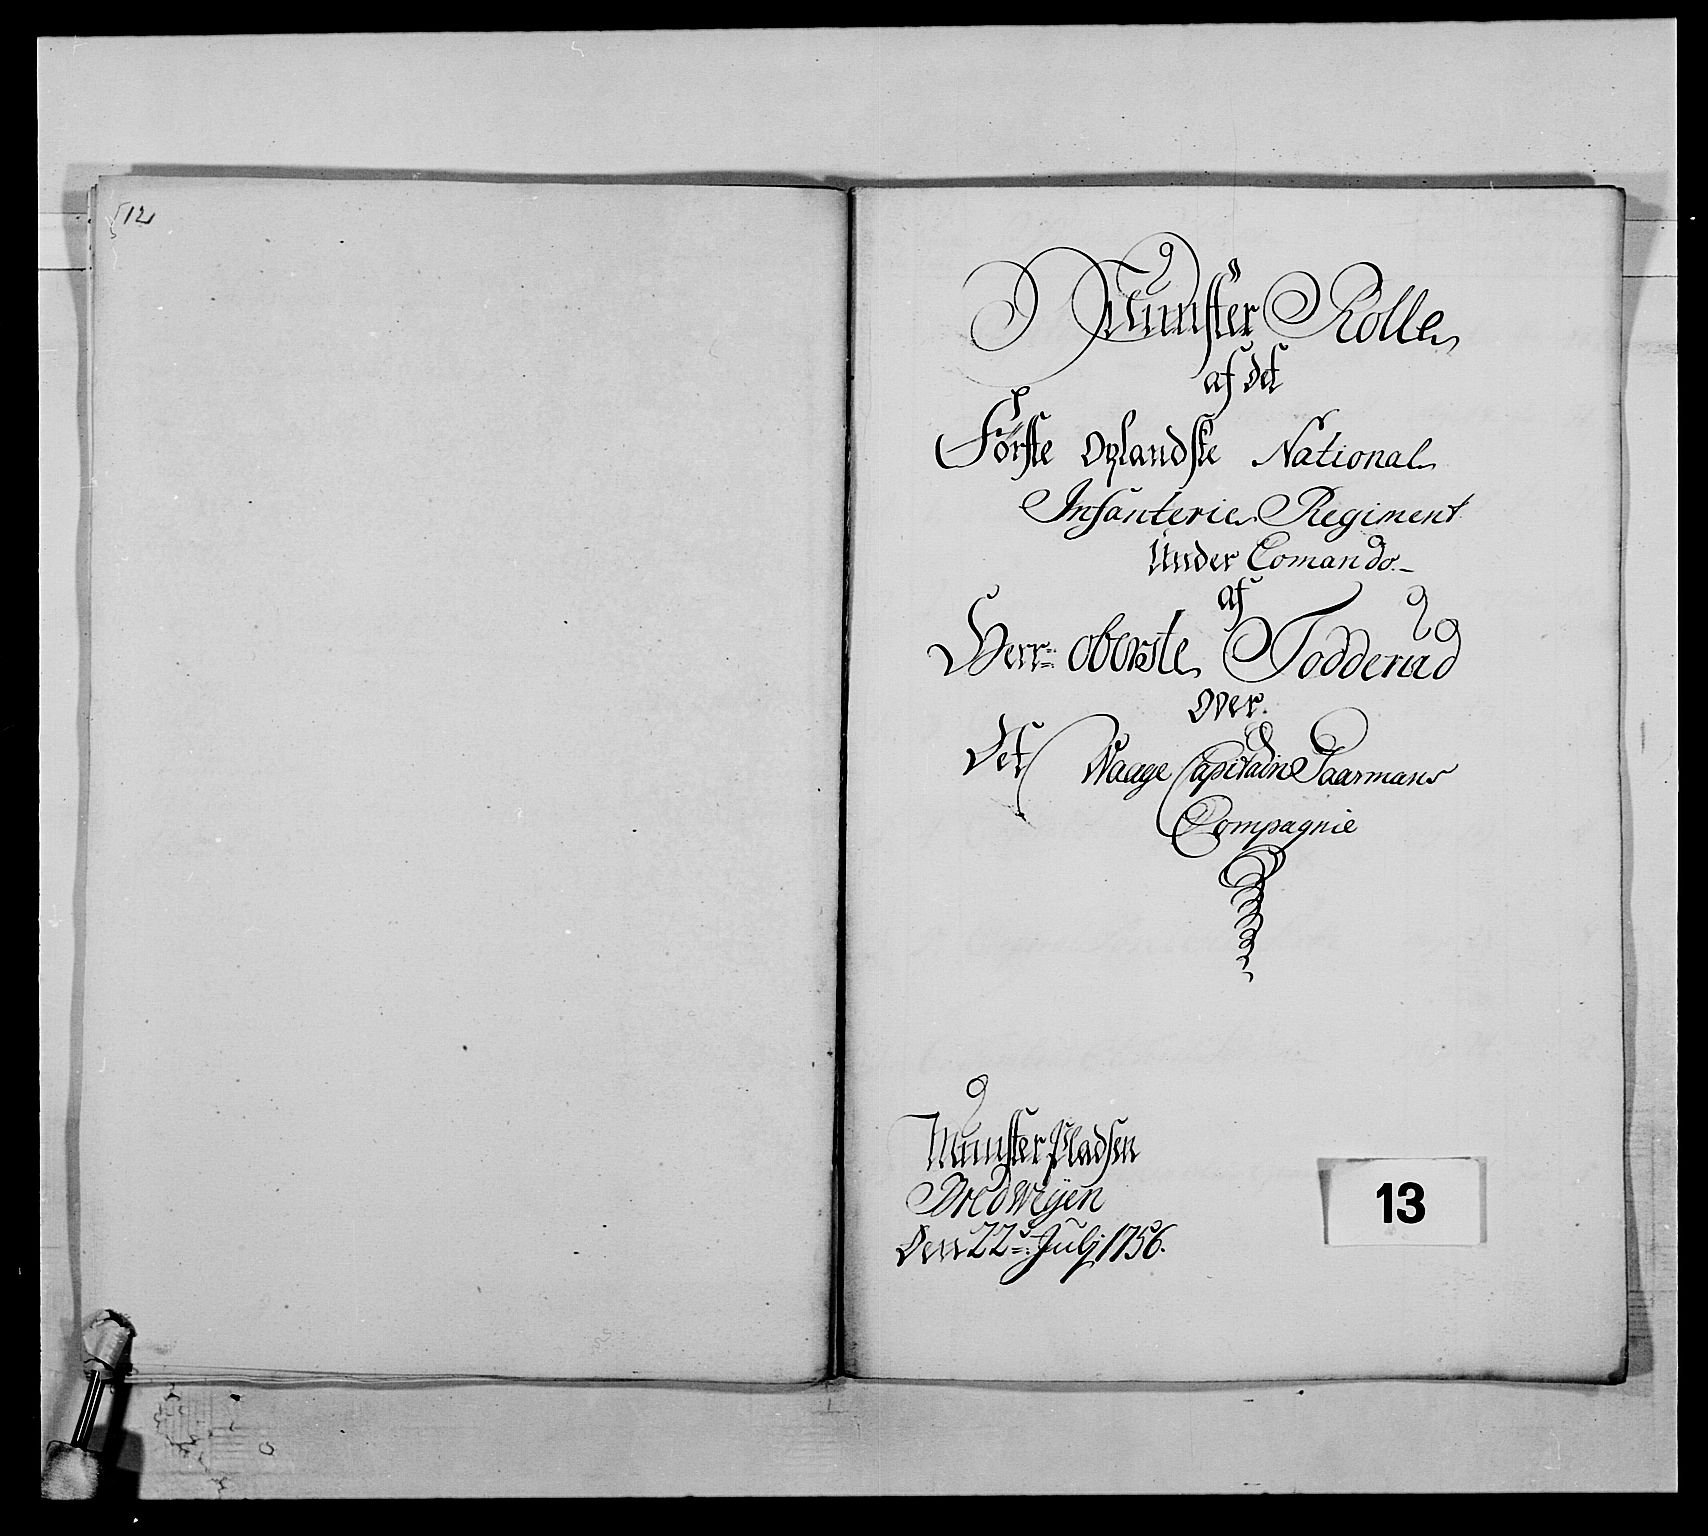 12
Munster Rolle
af det
Förste Oplandske National
Infanterie Regiment
Under Comando.
af
Herr: oberste Todderud
over.
Det Waage Capitain Saarmans
Compagnie
Munster Pladsen
Bredwigen
Den 22de: Julj 1756.
13